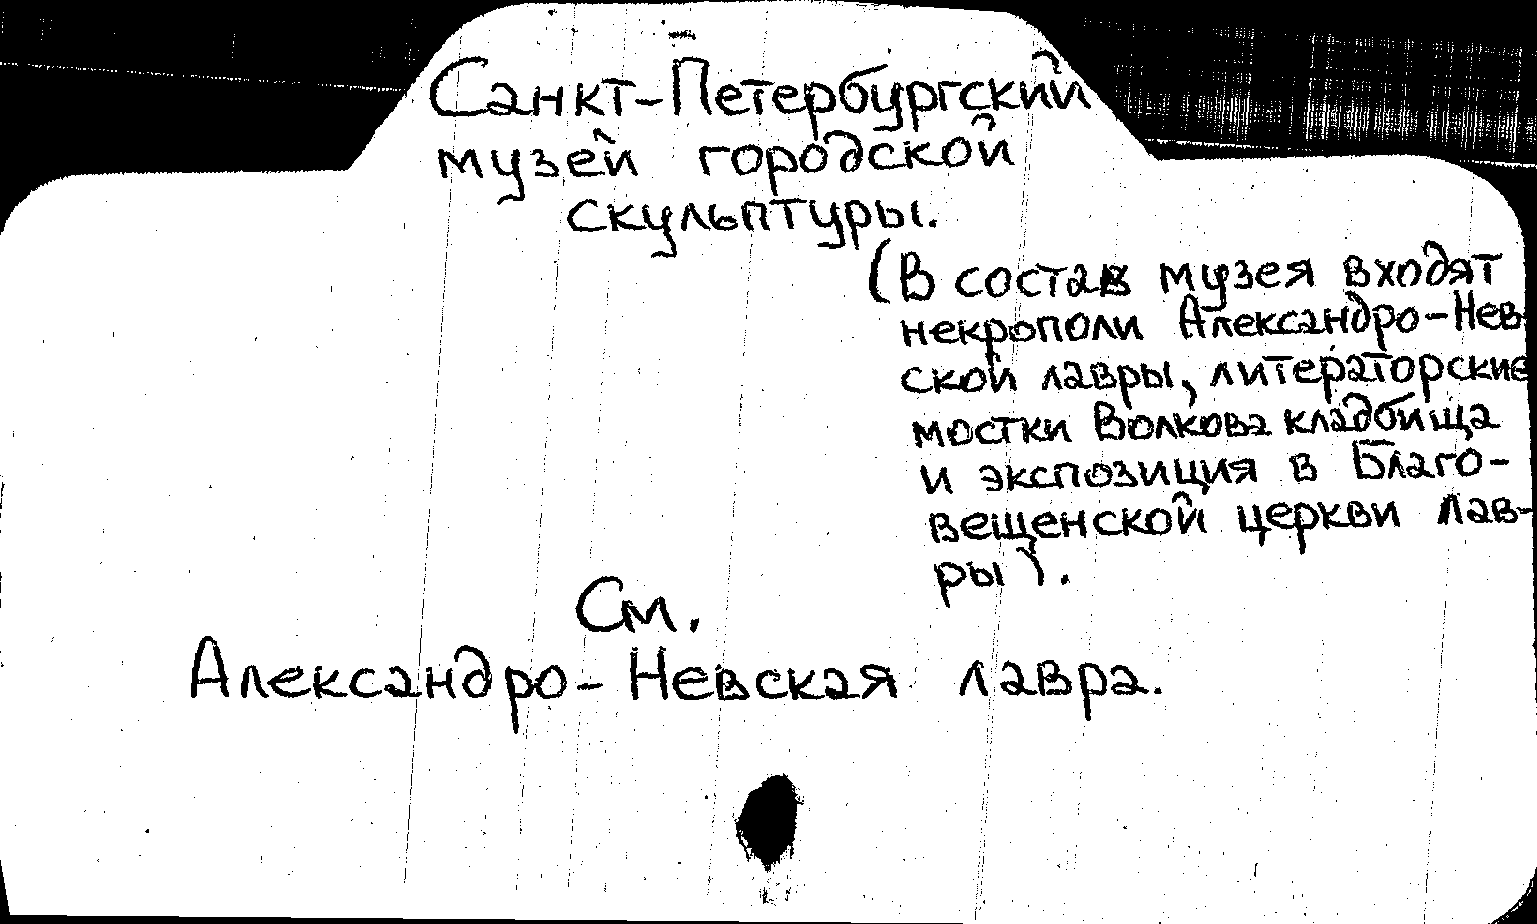 Санкт-Петербургский
музей городской
скульптуры.
(В состав музея входят
некрополи Александро-Нев-
ской лавры, литераторские
мостки Волкова кладбища
и экспозиция в Благо-
вещенской церкви лав-
ры).
См.
Александро-Невская лавра.